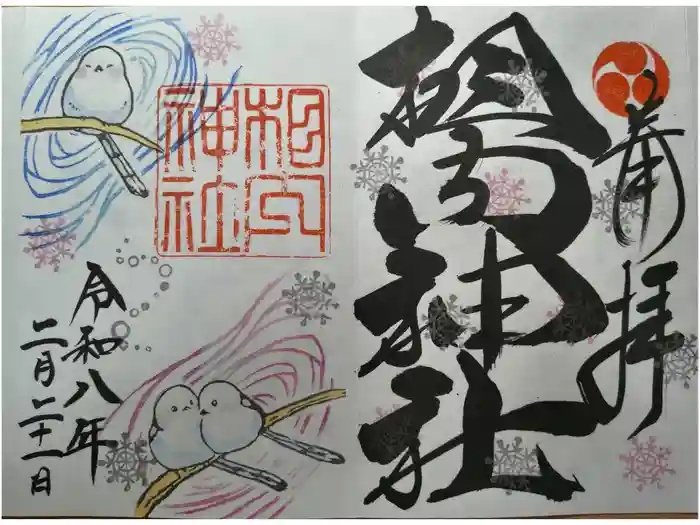 奉拝
相内神社
相内
神社
令和八年
二月二十一日